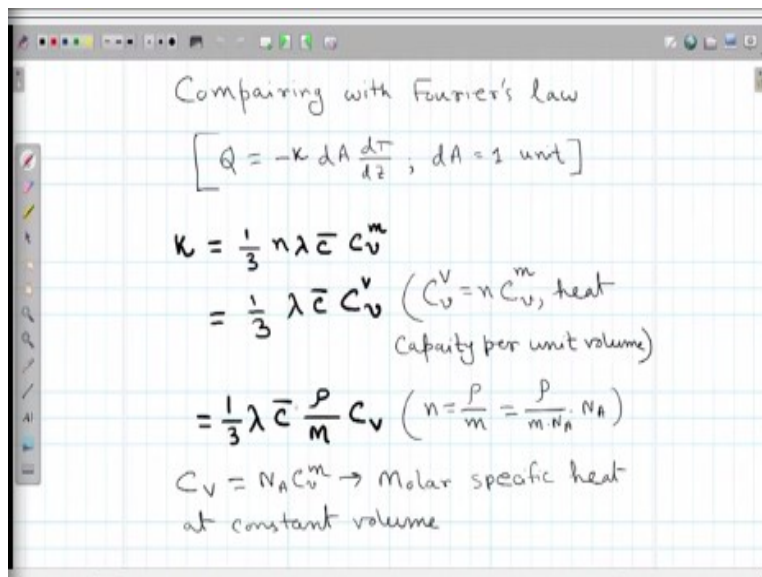 Compairing with Fourier's law
[Q = -K dA dT/dz ; dA = 1 unit]
K = 1/3 n λ c̄ C_v^m
= 1/3 λ c̄ C_v^v (C_v^v = n C_v^m, heat
Capaity per unit volume)
= 1/3 λ c̄ · ρ/M C_v (n = ρ/m = ρ/(m·N_A) · N_A)
C_v = N_A C_v^m → Molar speofic heat
at constant volume